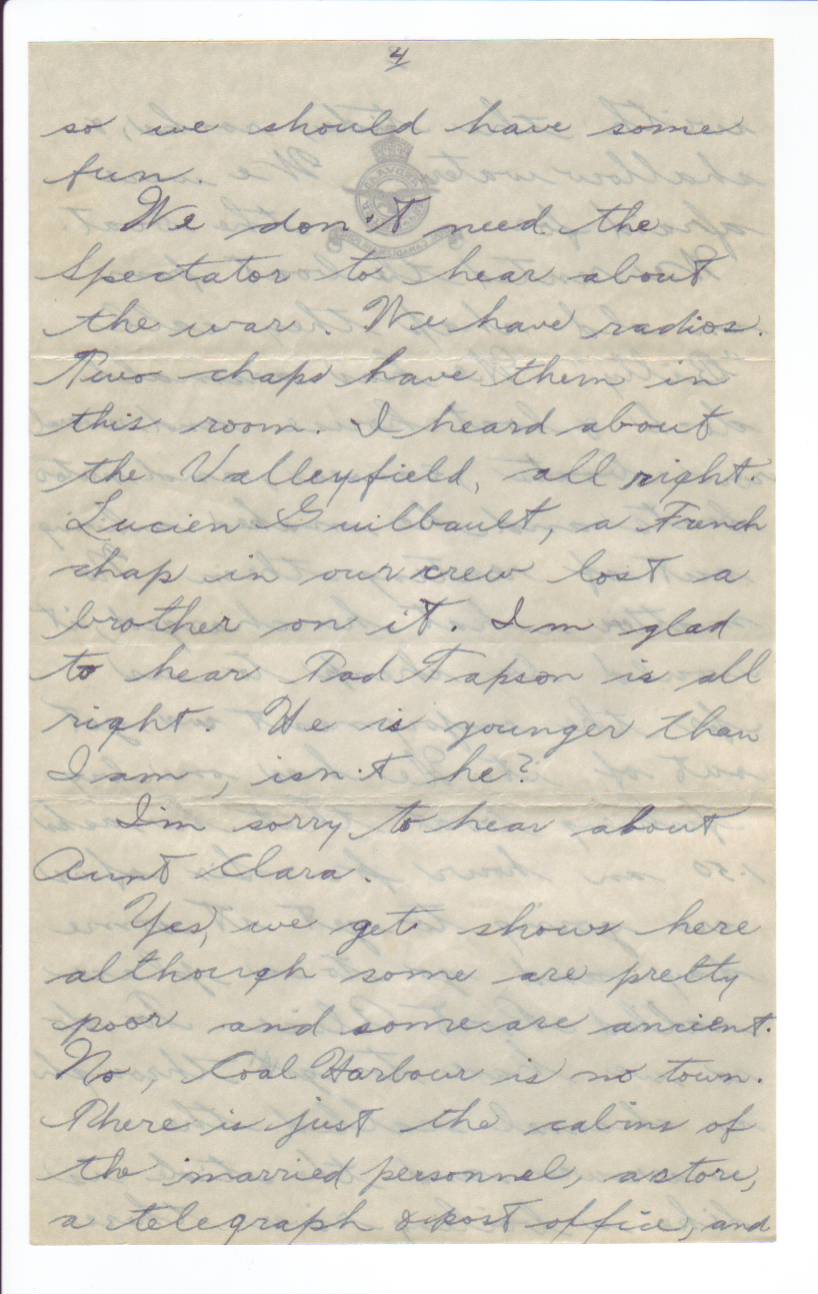 4
so we should have some
fun.
We don't need the
Spectator to hear about
the war. We have radios.
Two chaps have them in
this room. I heard about
the Valleyfield, all right.
Lucien Guilbault, a French
chap in our crew lost a
brother on it. I'm glad
to hear Tad Tapson is all
right. He is younger than
I am, isn't he?
I'm sorry to hear about
Aunt Clara.
Yes, we get shows here
although some are pretty
poor and some are ancient.
No, Coal Harbour is no town.
There is just the cabins of
the married personnel, a store,
a telegraph & post office, and